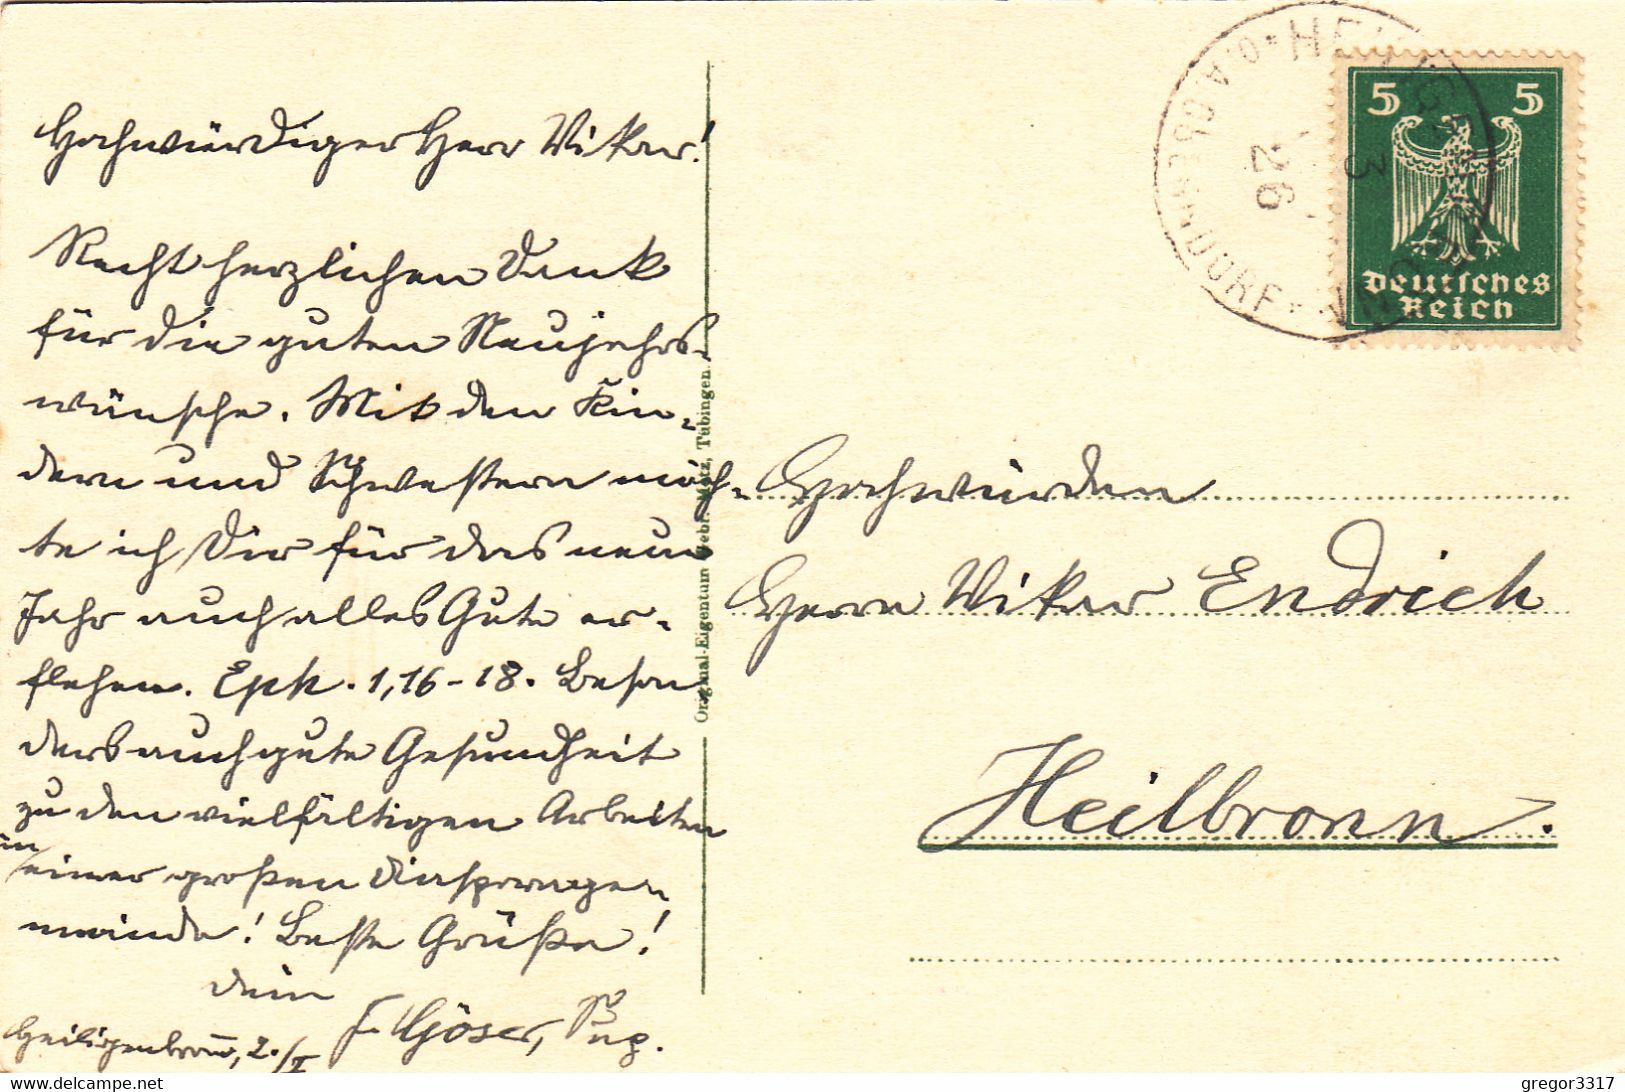 Hochwürdiger Herr Vikar!
Recht herzlichen Dank
für die guten Neujahrs-
wünsche. Mit den Kin-
dern und Schwestern möch-
te ich Dir für das neue
Jahr auch alles Gute er-
flehen. Eph. 1,16-18. Beson
ders auch gute Gesundheit
zu den vielfältigen Arbeiten
in
einer großen Diasporage-
meinde! Beste Grüße!
Dein
Heiligenbronn, 2./I
Original-Eigentum Gebr. Metz, Tübingen.
5 5
Deutsches
Reich
HEILIGENBRONN
O.A. OBERNDORF
3
26
Hochwürden
Herrn Vikar Endrich
Heilbronn.
gregor3317